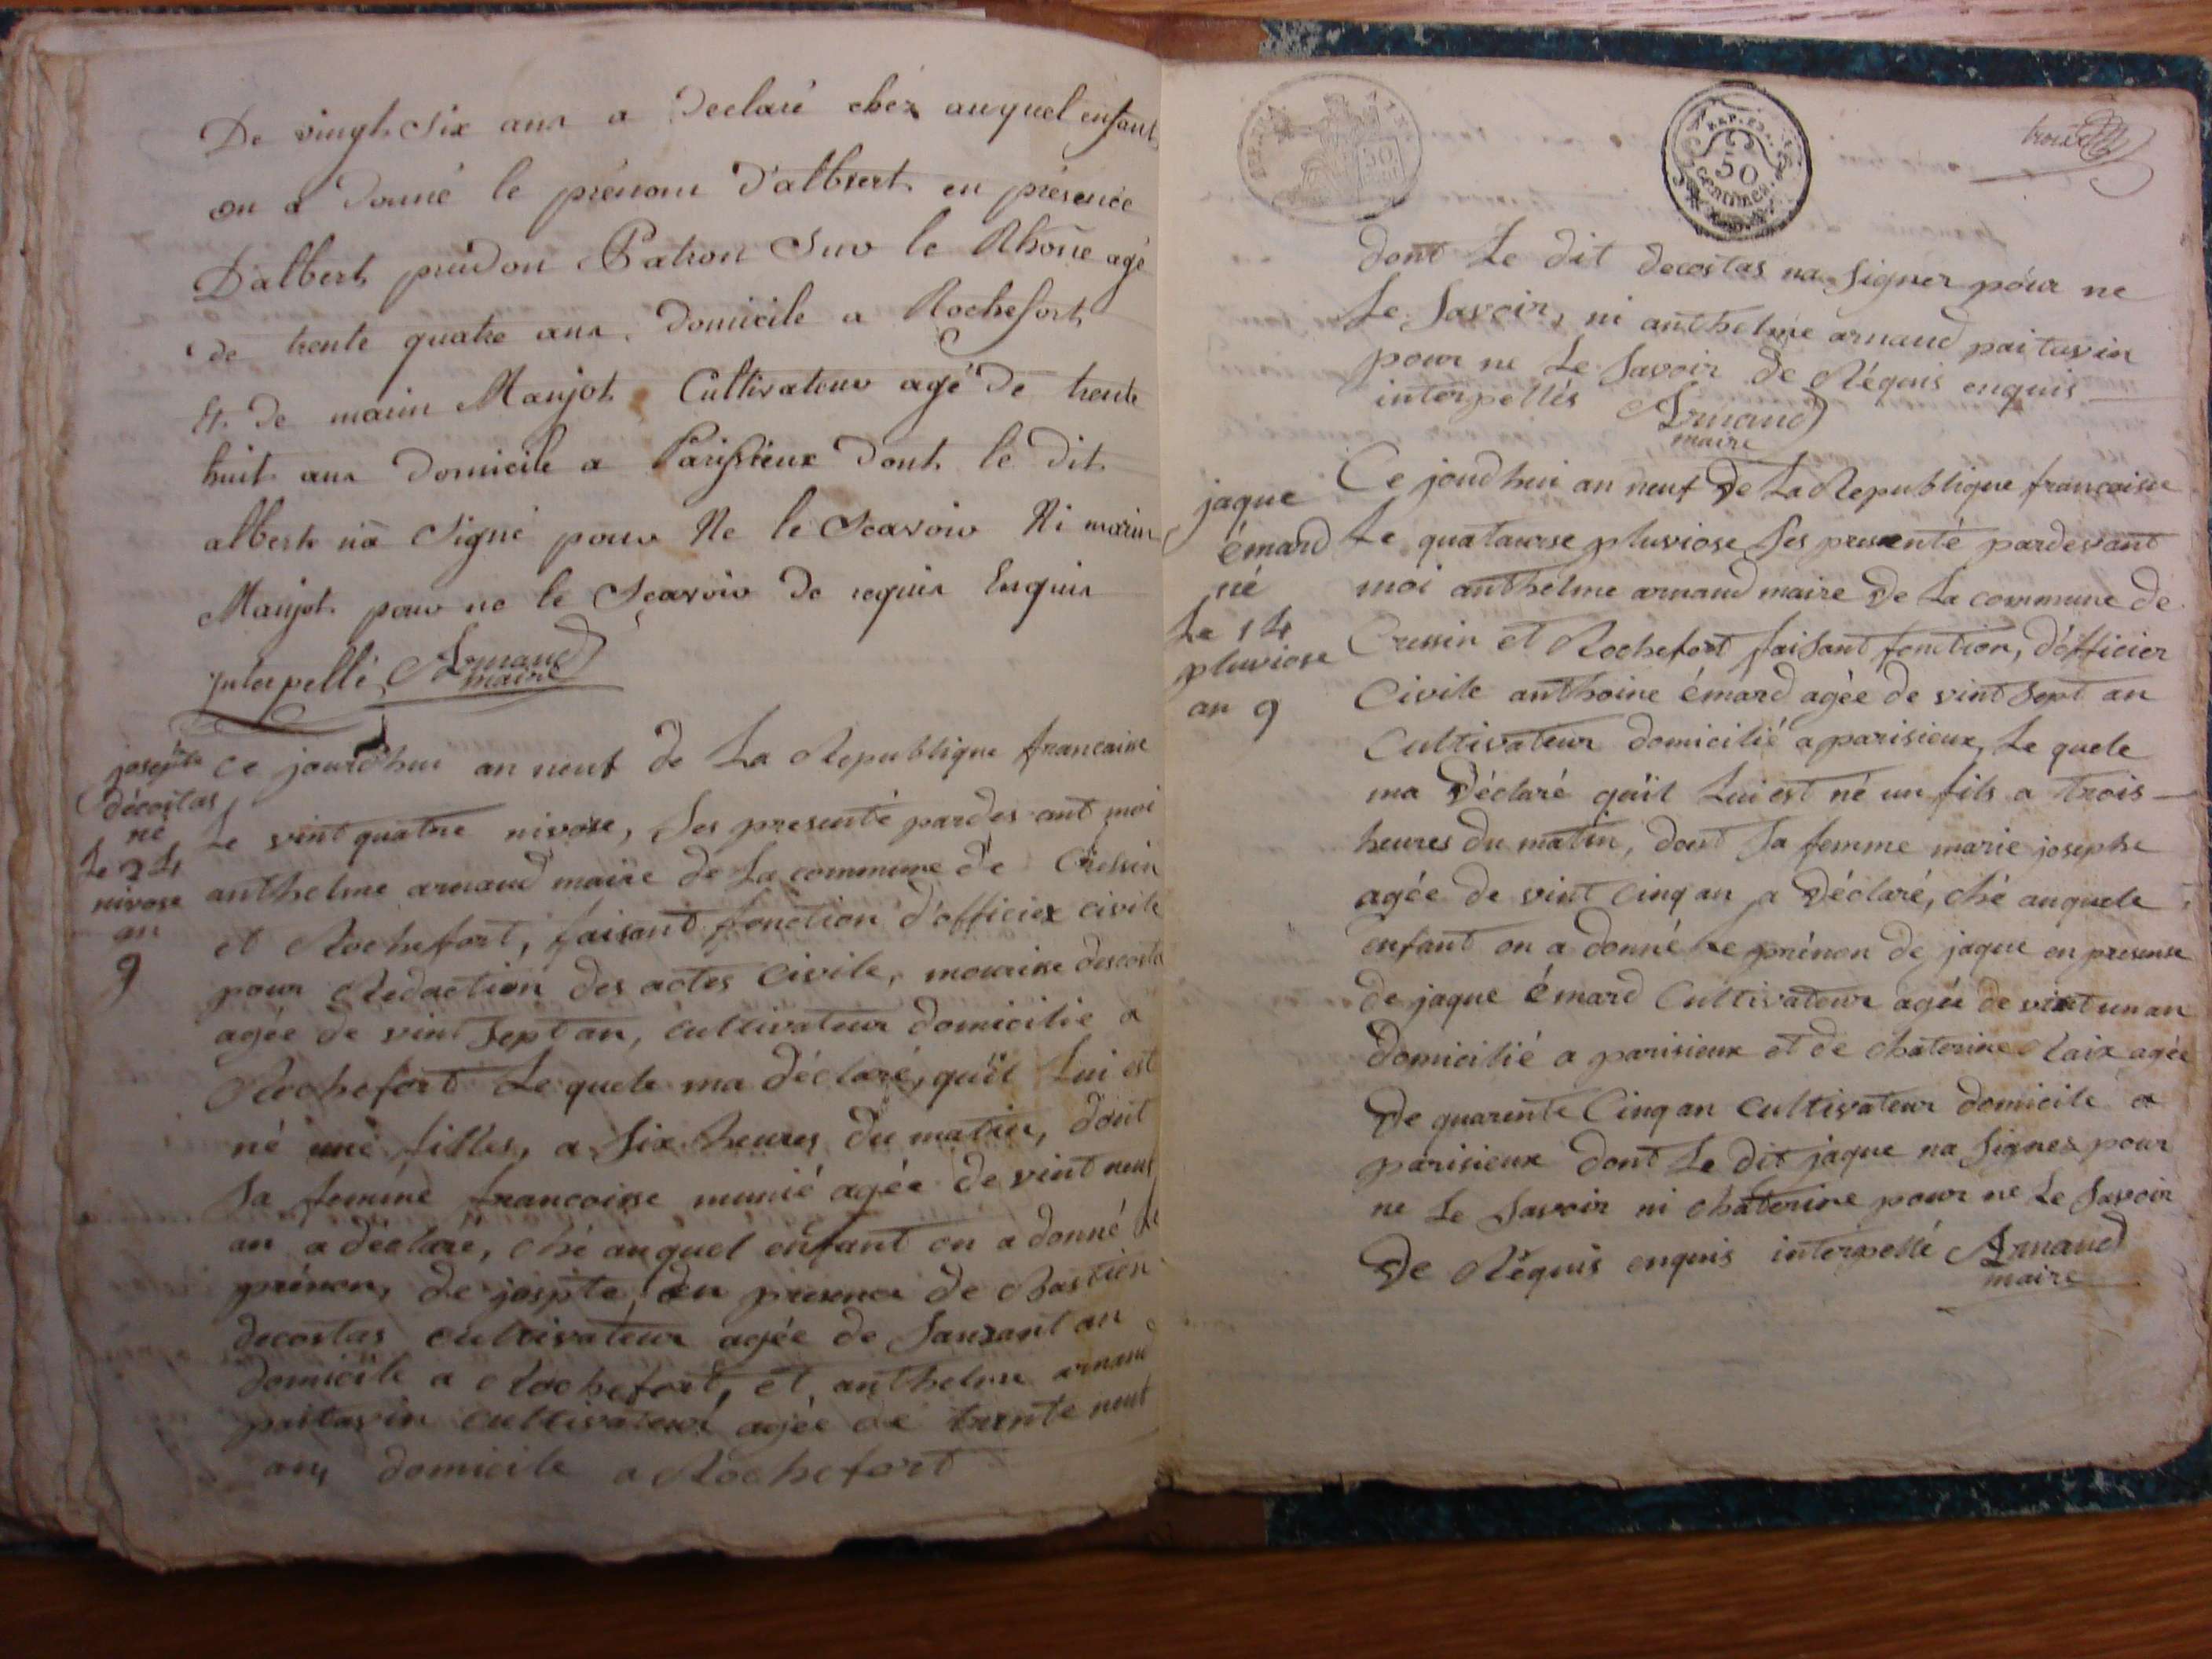 De vingt Six ans a Declaré chez auquel enfant
on a donné le prénom D'albert en présence
D'albert prudon Patron Sur le Rhône agé
de trente quatre ans Domicile a Rochefort
Et de marin Manjot Cultivateur agé De trente
huit ans Domicile a Parissieux Dont le Dit
albert n'a Signé pour Ne le Scavoir Ni marin
Manjot pour ne le Scavoir De requis Enquis
Interpellé Arnaud
maire
josepte
décostas
né
Le 24
nivose
an
9
Ce jourd'hui an neuf de La Republique francaise
Le vint quatre nivose, Ses presenté pardevant moi
anthelme arnaud maire de La commune de Cressin
et Rochefort, faisant fonction d'officier civile
pour Redaction des actes Civile, mouraise descosta
agée de vint Sept an, cultivateur domicilié a
Rochefort Le quele ma déclaré, qu'il Lui est
né une filles, a Six heures du matin, dont
Sa femme francoise munié agée de vint neuf
an a déclaré, ché auquel enfant on a donné Le
prénon, de jospte, en presence de Bastien
decostas cultivateur agée de Sauxant an
domicile a Rochefort, et anthelme arnaud
paitavin cultivateur agée de trente neuf
an, domicile a Rochefort
50
50
centimes
dont Le dit decostas na Signer pour ne
Le Savoir, ni anthelme arnaud paitavin
pour ne Le Savoir de Réquis enquis
interpellés Arnaud
maire
jaque
émard
né
Le 14
pluviose
an 9
Ce joudhui an neuf De La Republique francaise
Le quatourse pluviose Ses presenté pardevant
moi anthelme arnaud maire De La commune de
Cressin et Rochefort faisant fonction, d'officier
Civile anthoine émard agée de vint Sept an
Cultivateur domicilié a parisieux, Le quele
ma Déclaré qu'il Lui est né un fils a trois
heures du matin, dont Sa femme marie josephe
agée de vint Cinq an a Déclaré, ché auquele
enfant on a donné Le prénon de jaque en presense
de jaque émard Cultivateur agée de vint un an
domicilié a parisieux et de Chaterine Laix agée
De quarente Cinq an cultivateur domicile a
parisieux dont Le Dit jaque na Signer pour
ne Le Savoir ni Chaterine pour ne Le Savoir
De Réquis enquis interpellé Arnaud
maire